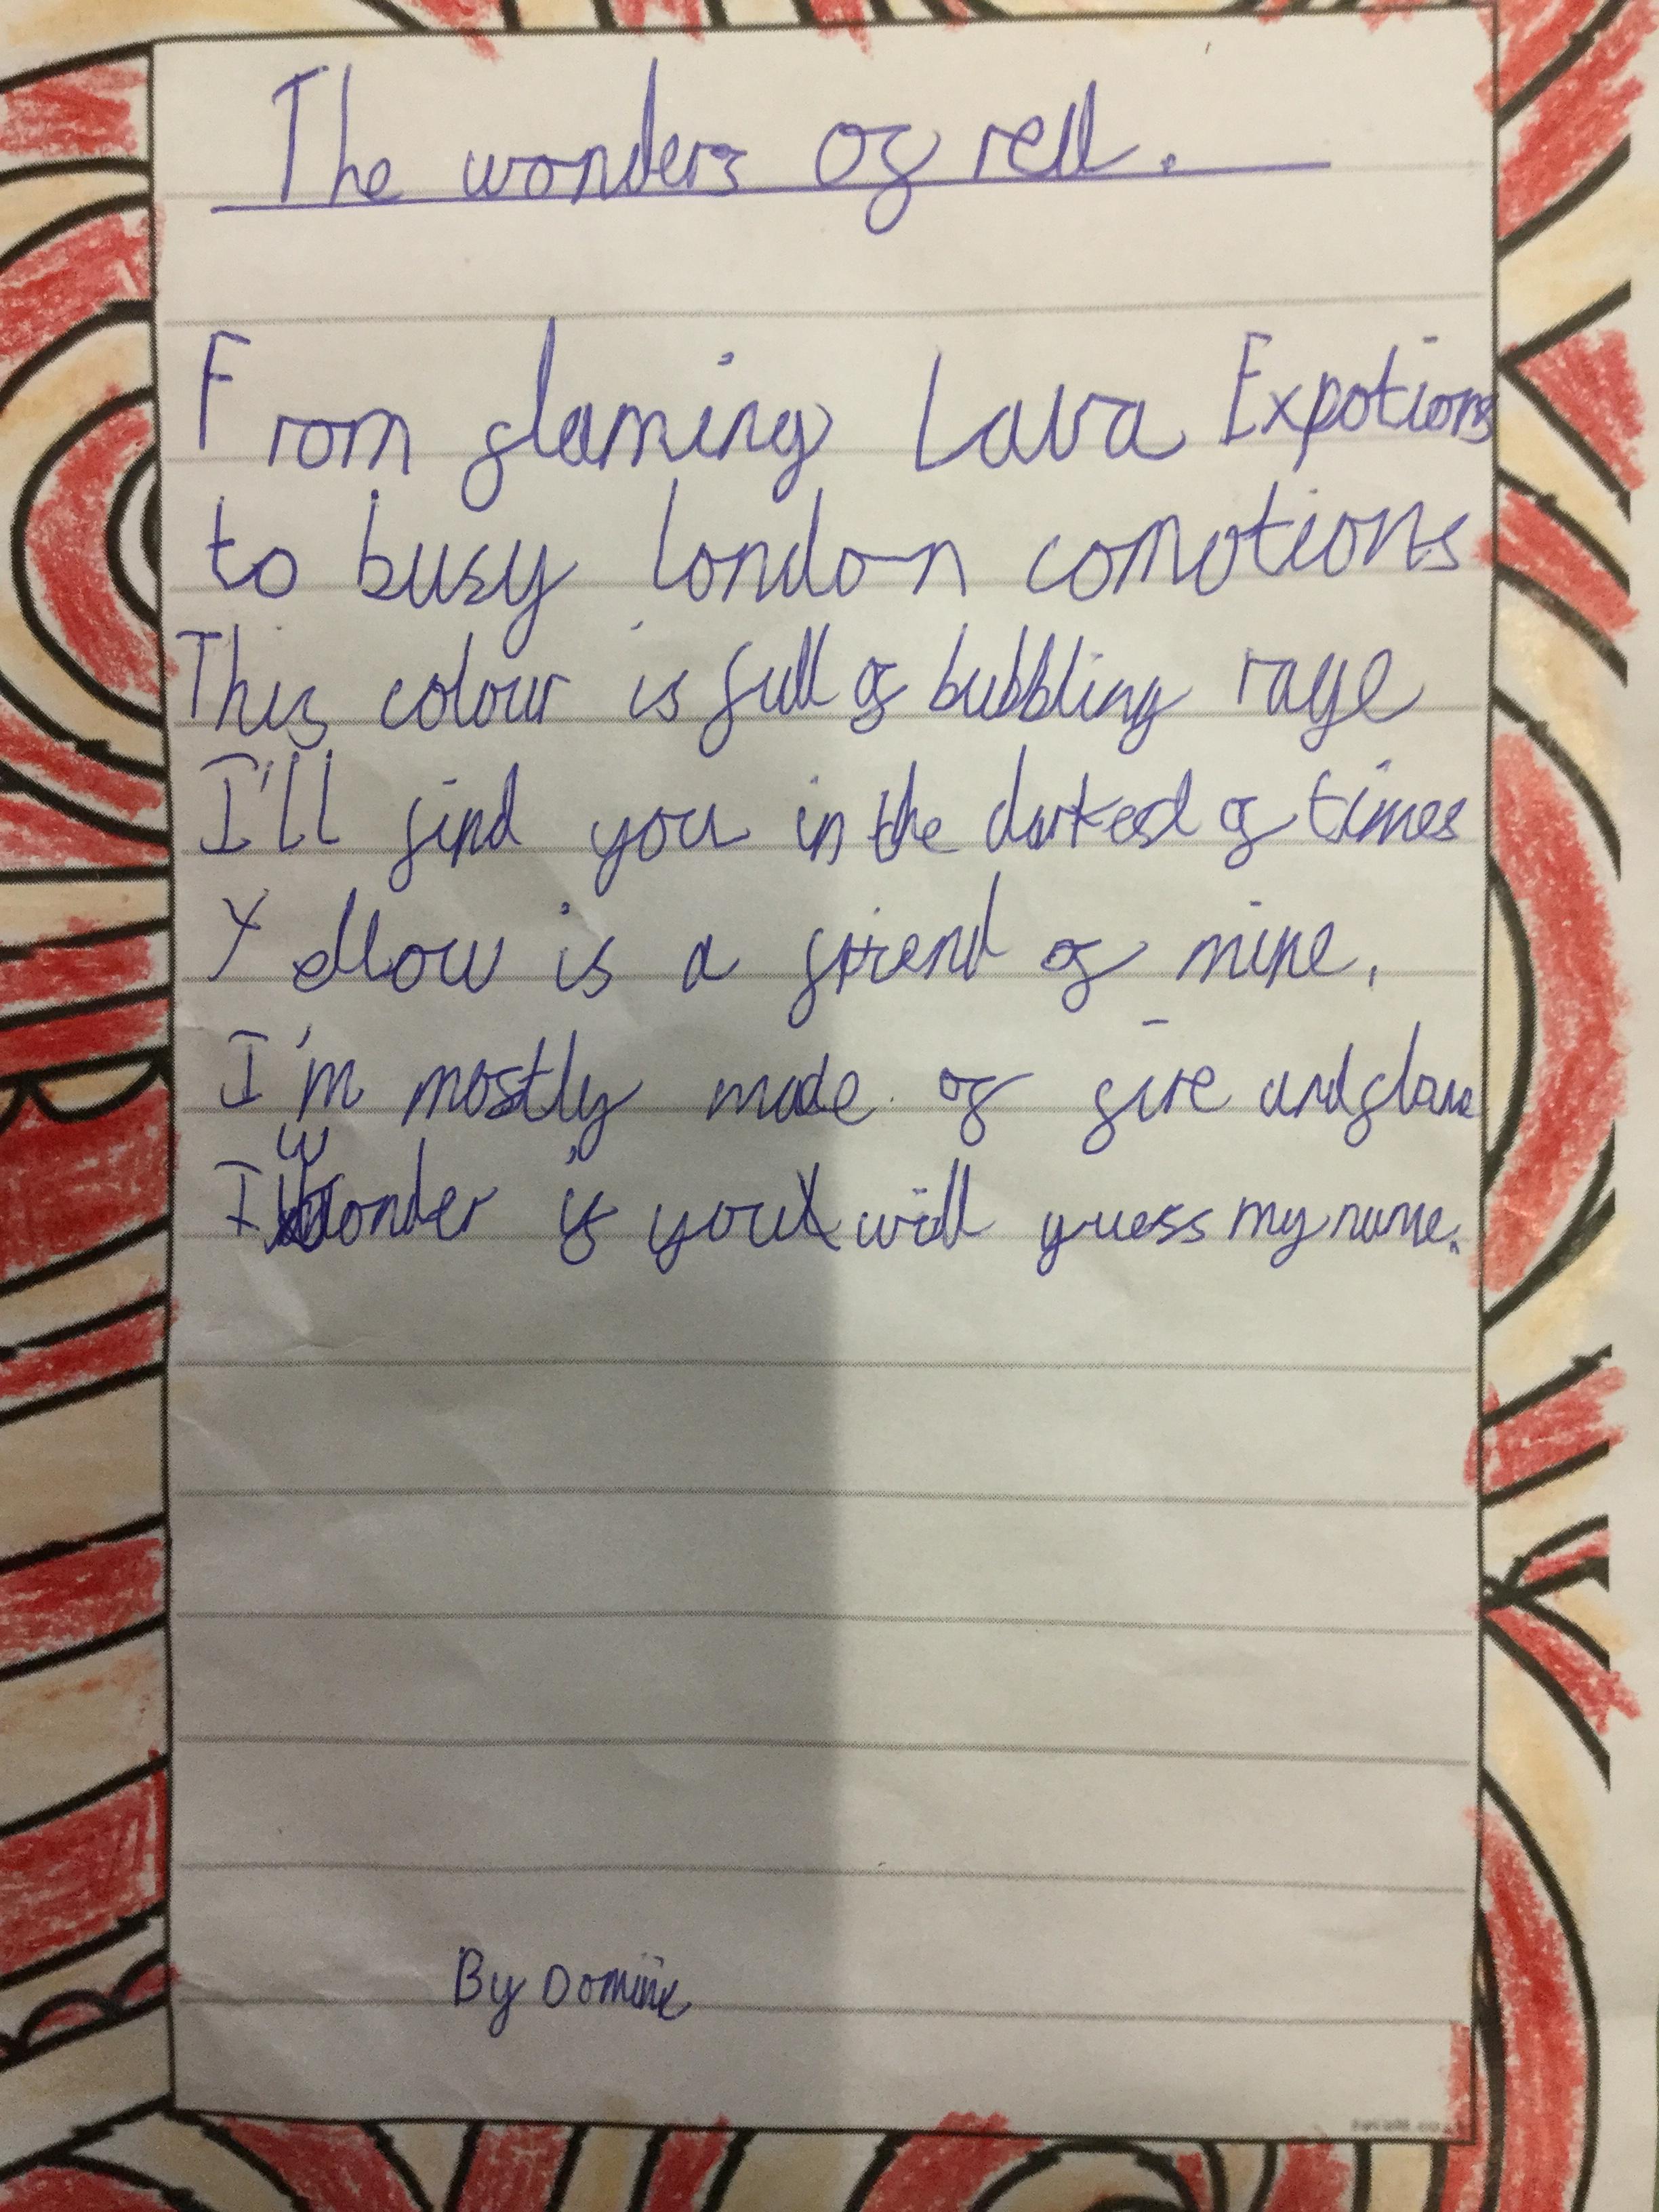 The wonders of red.
From flaming Lava Expotions
to busy london comotions
This colour is full of bubbling rage
I'll find you in the darkest of times
Yellow is a friend of mine.
I'm mostly made of fire and flame
I wonder if you will guess my name.
By Dominic